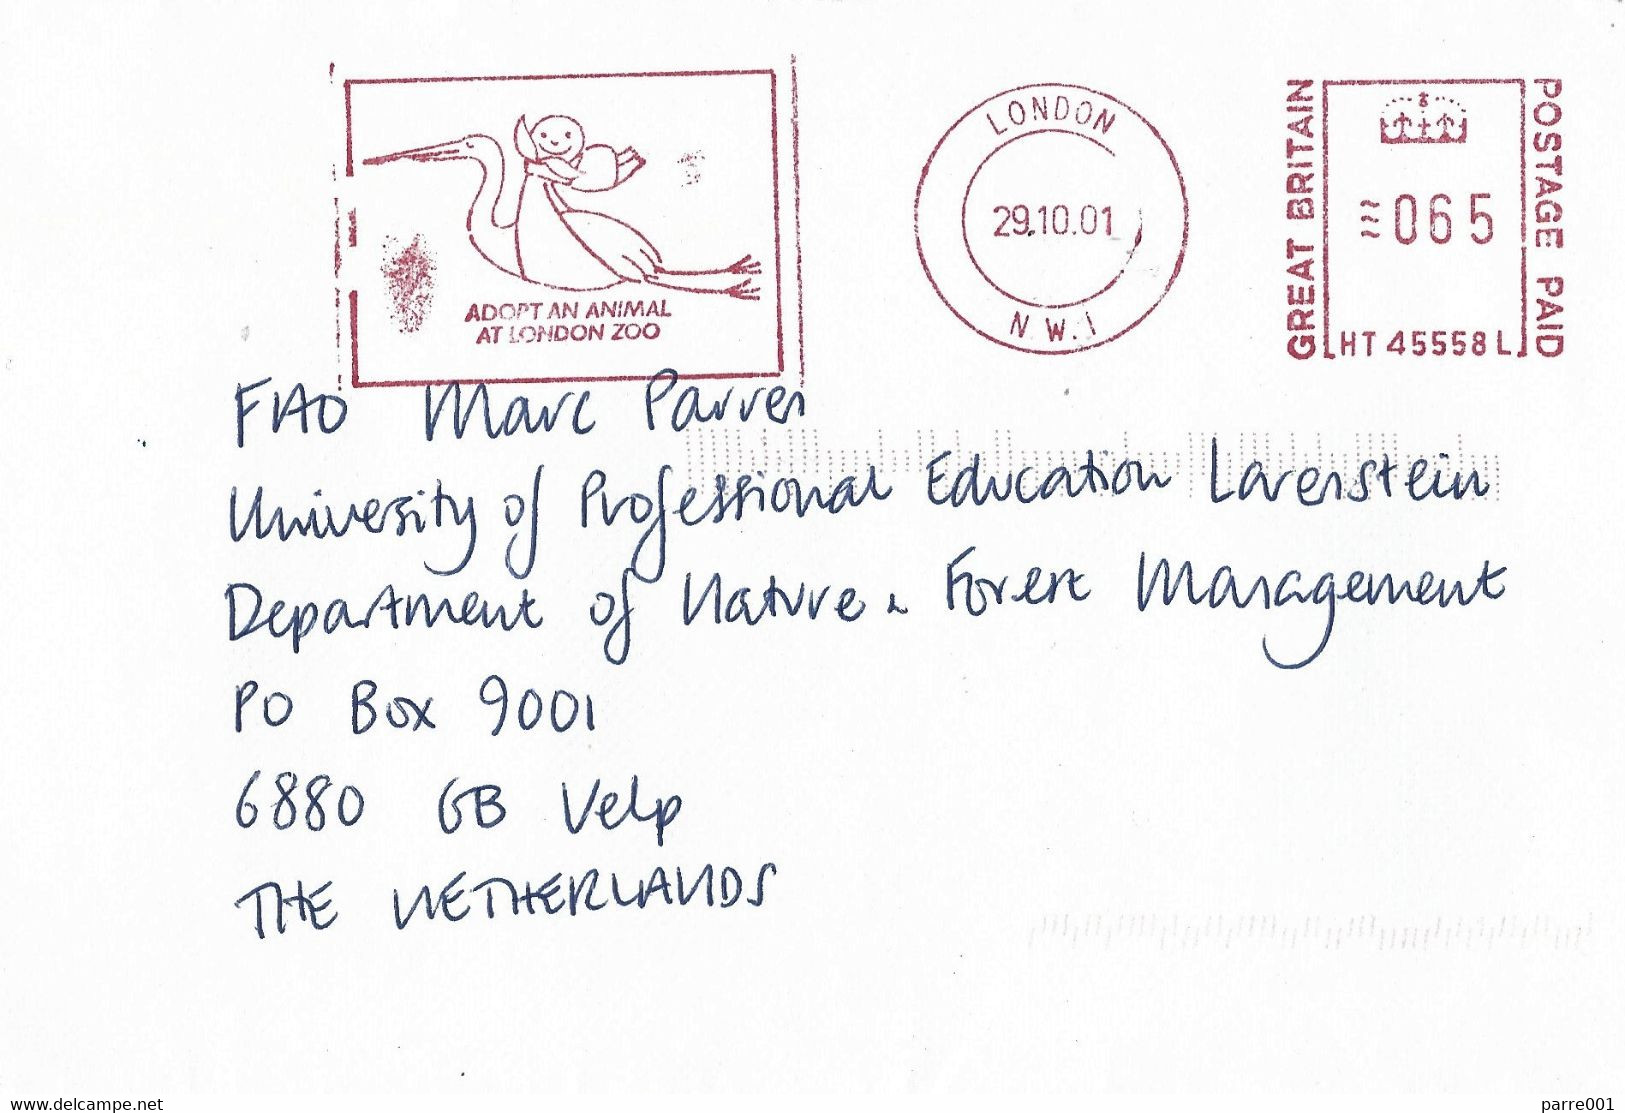 ADOPT AN ANIMAL
AT LONDON ZOO
LONDON
29.10.01
N W.1
GREAT BRITAIN
065
HT 45558 L
POSTAGE PAID
FAO Marc Parren
University of Professional Education Larenstein
Department of Nature & Forest Management
PO Box 9001
6880 GB Velp
THE NETHERLANDS
www.delcampe.net
parre001